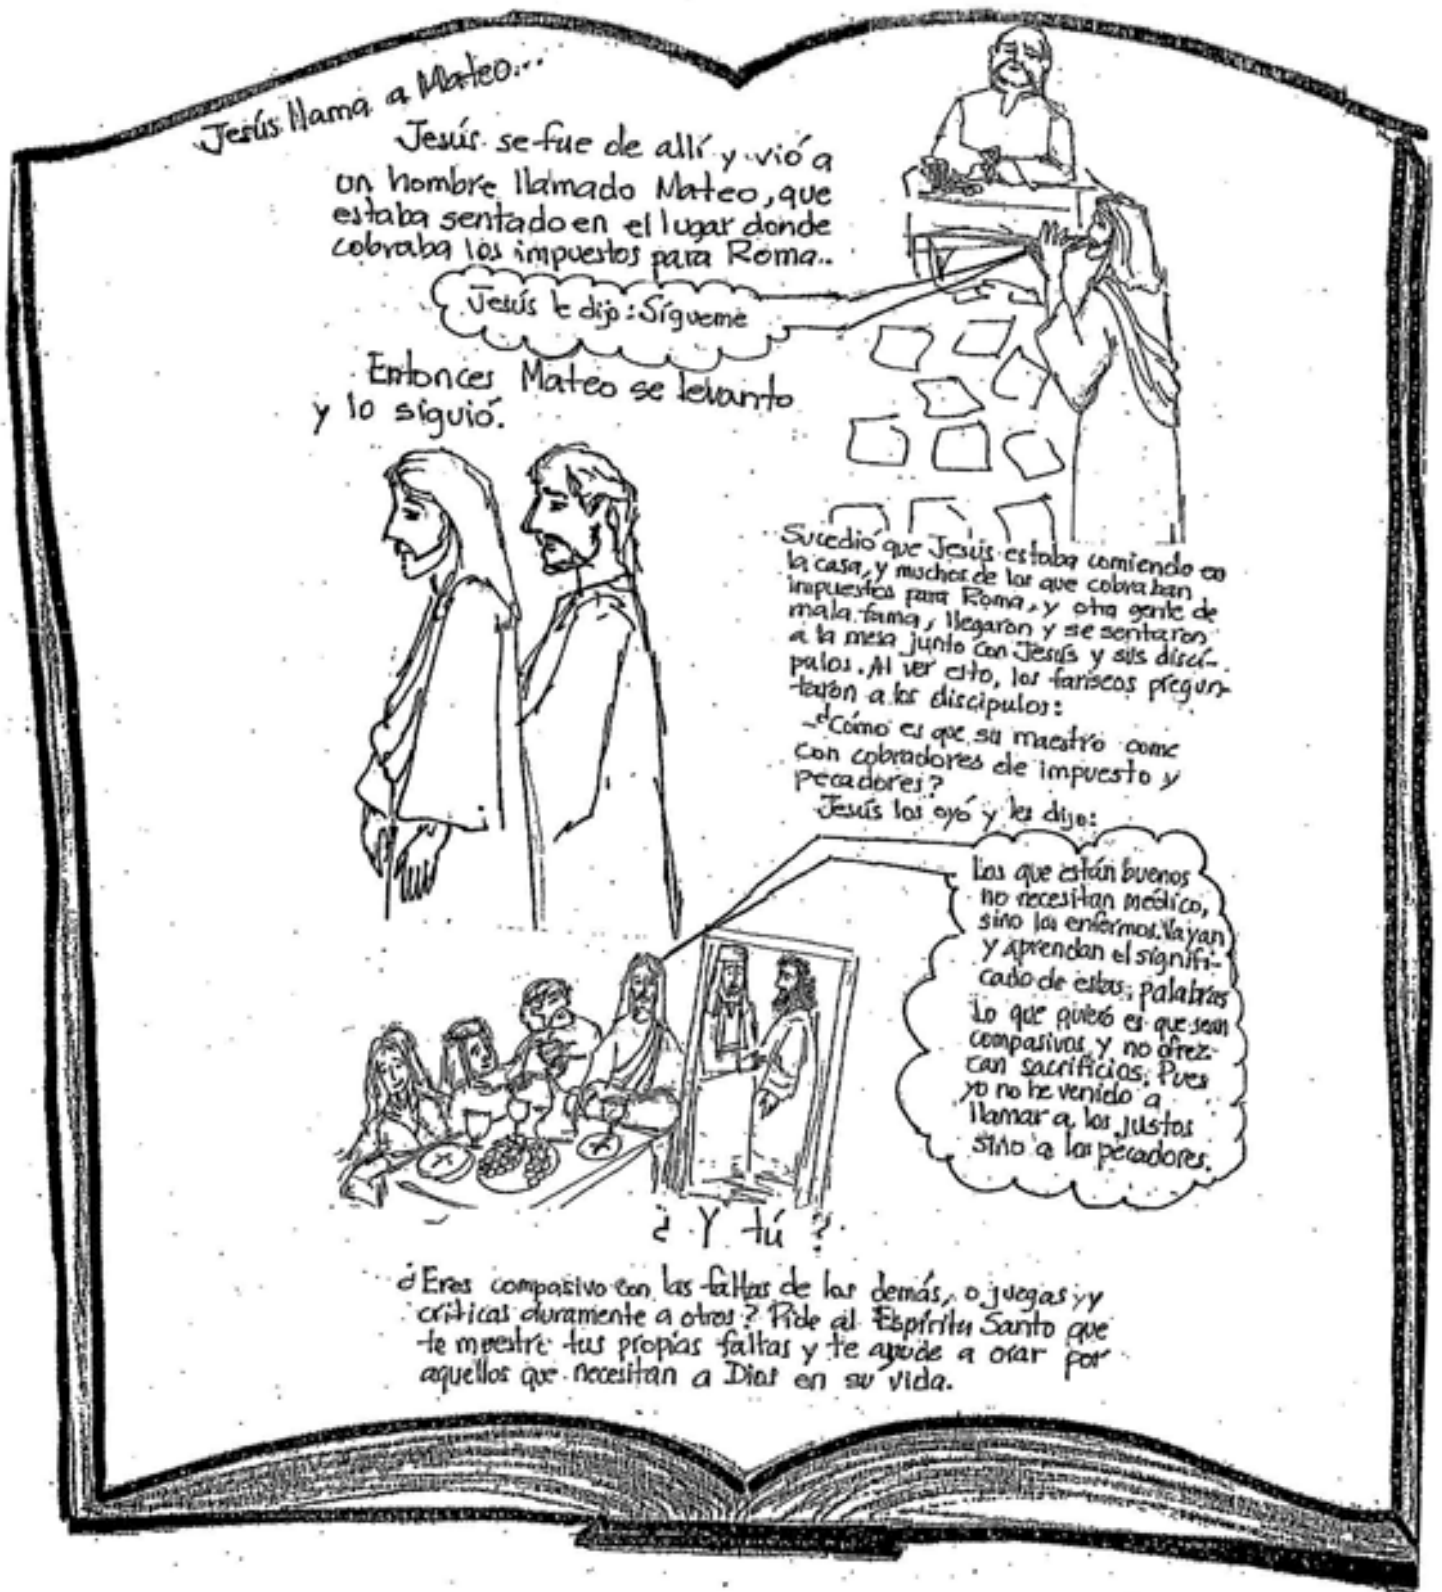 Jesús llama a Mateo...
Jesús se fue de allí y vió a
un hombre llamado Mateo, que
estaba sentado en el lugar donde
cobraba los impuestos para Roma..
Jesús le dijo: Sígueme
Entonces Mateo se levanto
y lo siguió.
Sucedió que Jesús estaba comiendo en
la casa, y muchos de los que cobraban
impuestos para Roma, y otra gente de
mala fama, llegaron y se sentaron
a la mesa junto con Jesús y sus discí-
pulos. Al ver esto, los fariseos pregun-
taron a los discípulos:
-¿Cómo es que su maestro come
con cobradores de impuesto y
pecadores?
Jesús los oyó y les dijo:
Los que están buenos
no necesitan médico,
sino los enfermos. Vayan
y aprendan el signifi-
cado de estas; palabras
Lo que quiero es que sean
compasivos y no ofrez-
can sacrificios; Pues
yo no he venido a
llamar a los justos
sino a los pecadores.
¿Y tú?
¿Eres compasivo con las faltas de los demás, o juegas y
críticas duramente a otros? Pide al Espíritu Santo que
te muestre tus propias faltas y te ayude a orar por
aquellos que necesitan a Dios en su vida.